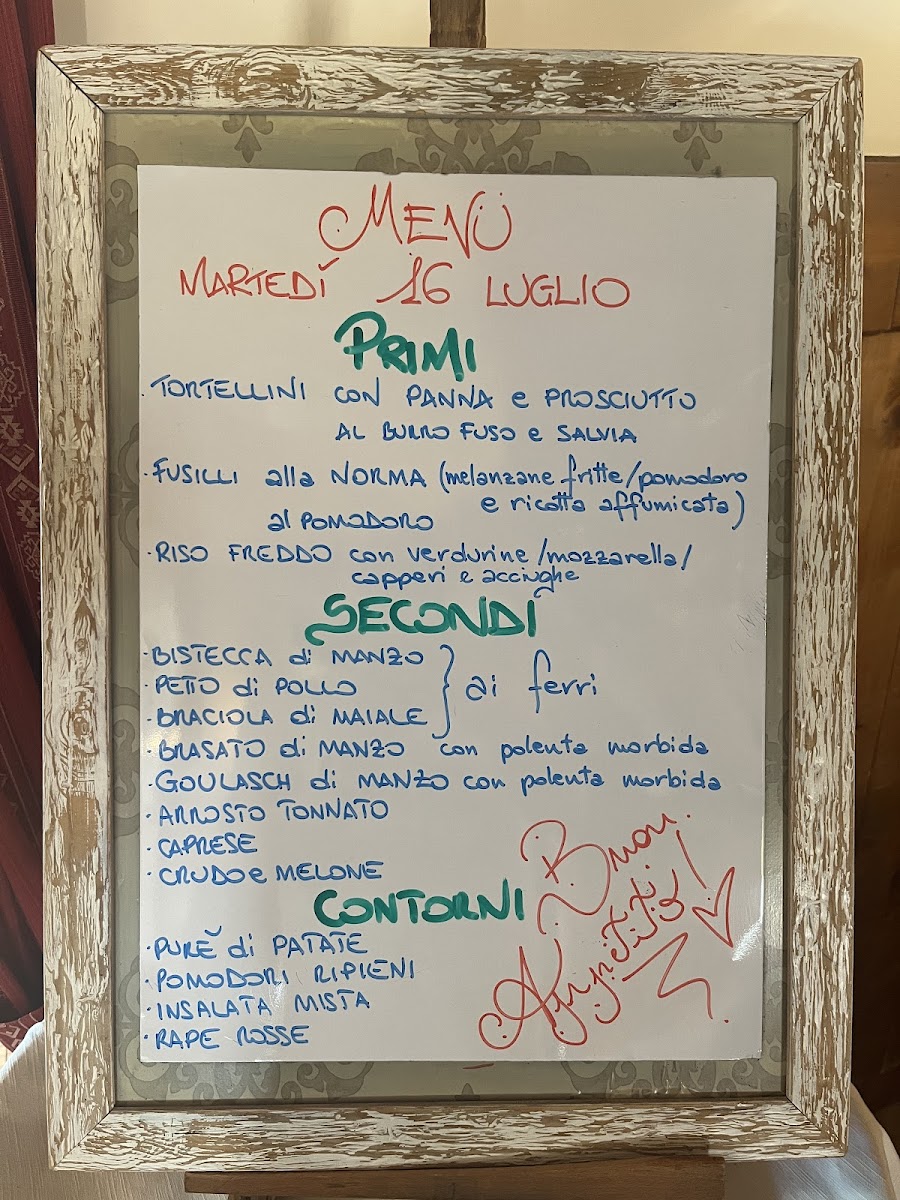 MENÙ
MARTEDÌ 16 LUGLIO
PRIMI
· TORTELLINI con PANNA e PROSCIUTTO
AL BURRO FUSO e SALVIA
· FUSILLI alla NORMA (melanzane fritte/pomodoro
e ricotta affumicata)
al POMODORO
· RISO FREDDO con verdurine/mozzarella/
capperi e acciughe
SECONDI
· BISTECCA di MANZO
· PETTO di POLLO } ai ferri
· BRACIOLA di MAIALE
· BRASATO di MANZO con polenta morbida
· GOULASCH di MANZO con polenta morbida
· ARROSTO TONNATO
· CAPRESE
· CRUDO e MELONE
CONTORNI
· PURÈ di PATATE
· POMODORI RIPIENI
· INSALATA MISTA
· RAPE ROSSE
Buon
Appetito!